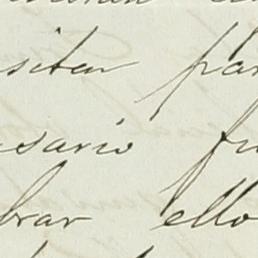 sitar par
sario fu
brar ello